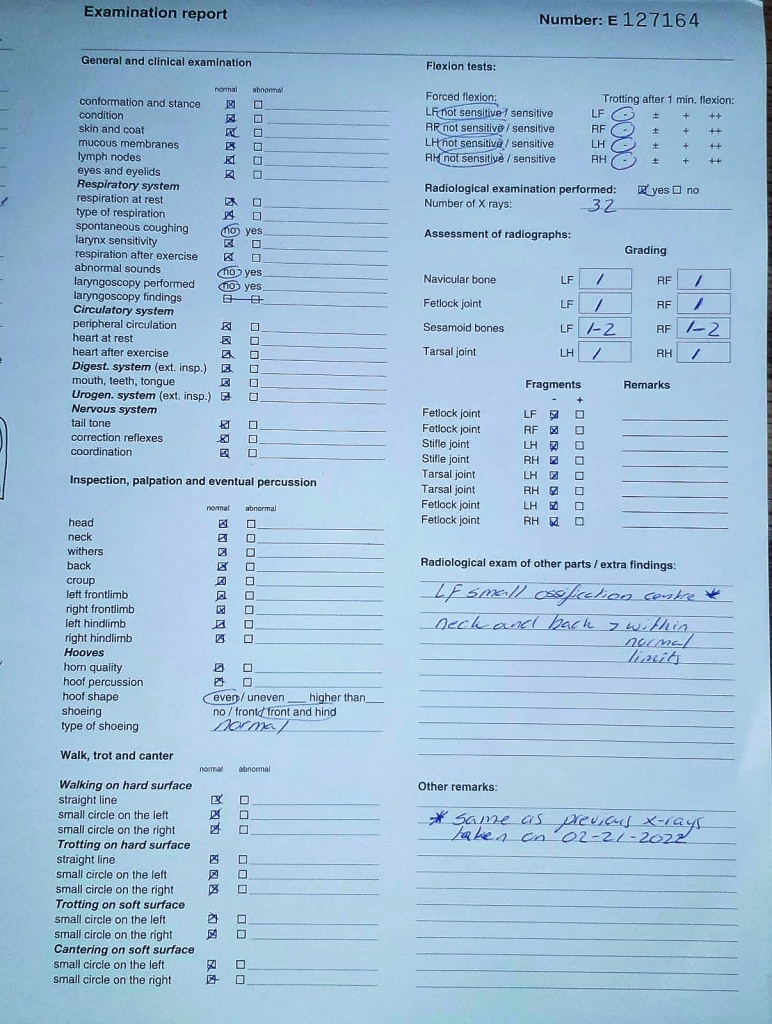 Examination report
Number: E 127164
General and clinical examination
normal abnormal
conformation and stance
condition
skin and coat
mucous membranes
lymph nodes
eyes and eyelids
Respiratory system
respiration at rest
type of respiration
spontaneous coughing no yes
larynx sensitivity
respiration after exercise
abnormal sounds no yes
laryngoscopy performed no yes
laryngoscopy findings
Circulatory system
peripheral circulation
heart at rest
heart after exercise
Digest. system (ext. insp.)
mouth, teeth, tongue
Urogen. system (ext. insp.)
Nervous system
tail tone
correction reflexes
coordination
Inspection, palpation and eventual percussion
normal abnormal
head
neck
withers
back
croup
left frontlimb
right frontlimb
left hindlimb
right hindlimb
Hooves
horn quality
hoof percussion
hoof shape even / uneven ___ higher than ___
shoeing no / front / front and hind
type of shoeing normal
Walk, trot and canter
normal abnormal
Walking on hard surface
straight line
small circle on the left
small circle on the right
Trotting on hard surface
straight line
small circle on the left
small circle on the right
Trotting on soft surface
small circle on the left
small circle on the right
Cantering on soft surface
small circle on the left
small circle on the right
Flexion tests:
Forced flexion: Trotting after 1 min. flexion:
LF not sensitive / sensitive LF - ± + ++
RF not sensitive / sensitive RF - ± + ++
LH not sensitive / sensitive LH - ± + ++
RH not sensitive / sensitive RH - ± + ++
Radiological examination performed: yes no
Number of X rays: 32
Assessment of radiographs:
Grading
Navicular bone LF 1 RF 1
Fetlock joint LF 1 RF 1
Sesamoid bones LF 1-2 RF 1-2
Tarsal joint LH 1 RH 1
Fragments Remarks
- +
Fetlock joint LF
Fetlock joint RF
Stifle joint LH
Stifle joint RH
Tarsal joint LH
Tarsal joint RH
Fetlock joint LH
Fetlock joint RH
Radiological exam of other parts / extra findings:
LF small ossification centre *
neck and back > within
normal
limits
Other remarks:
* same as previous x-rays
taken on 02-21-2022